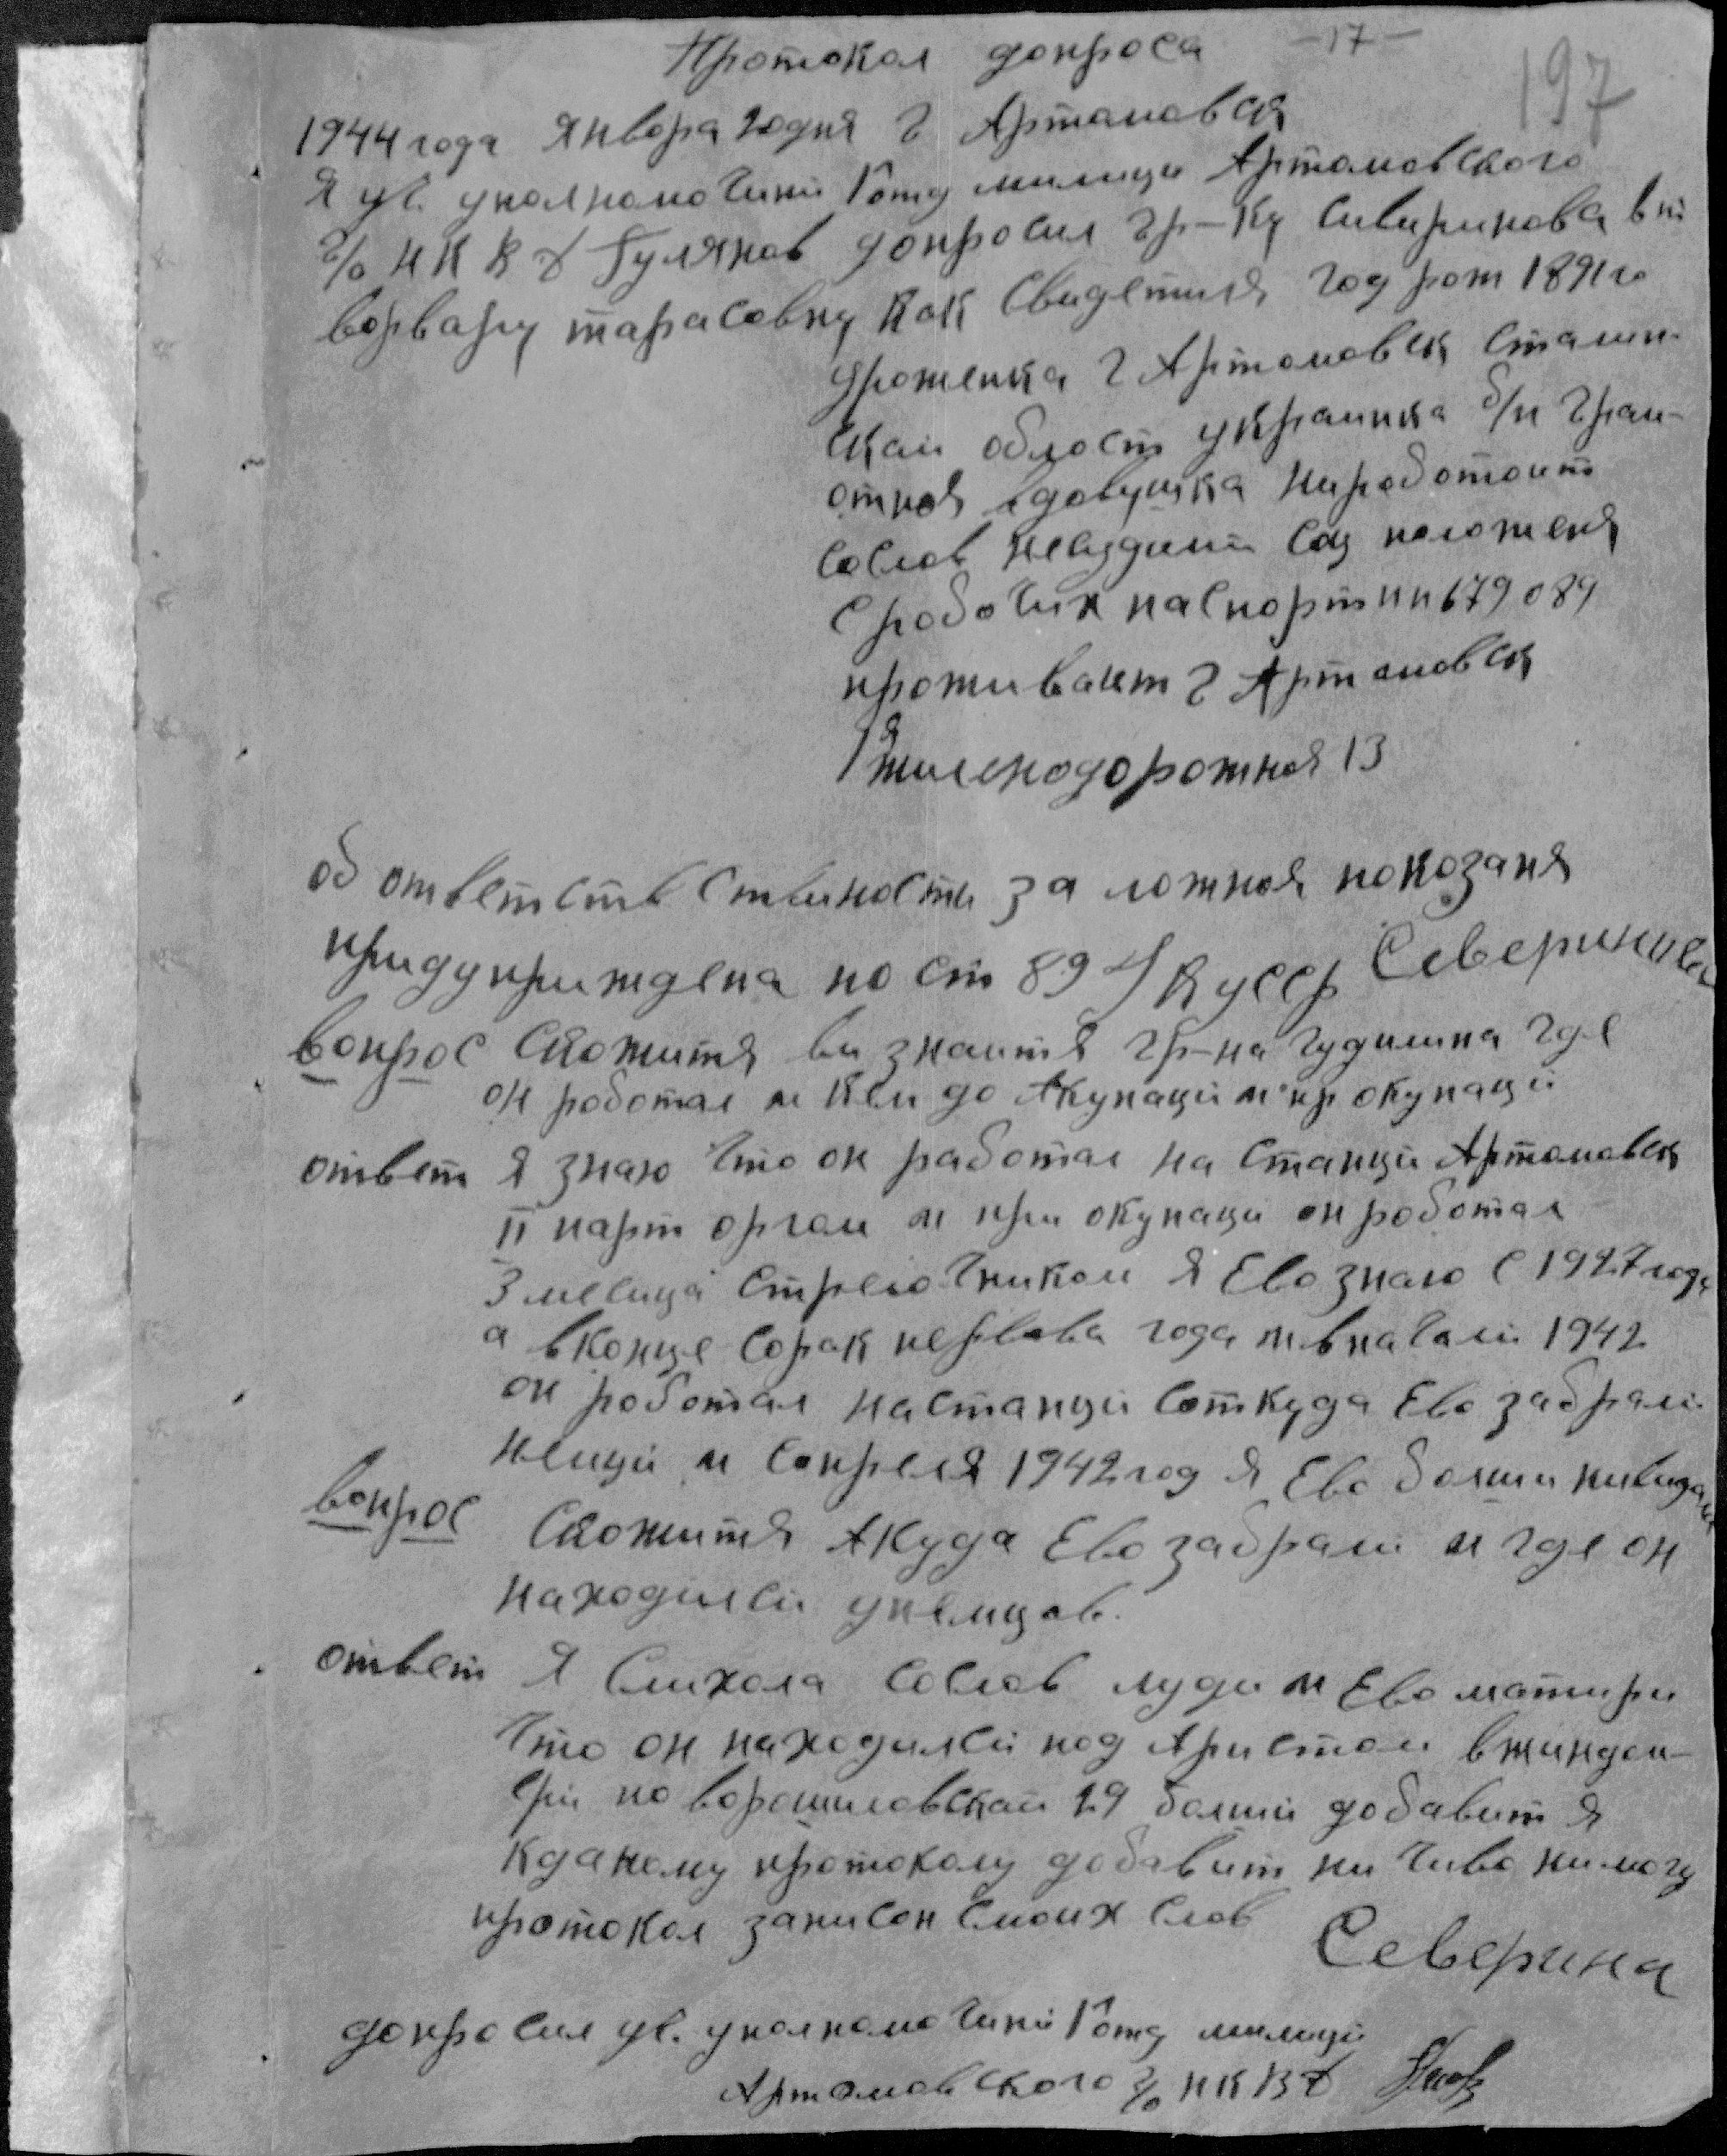 Протокол допроса -17-
197
1944 года январа 20 дня г Артамовск
Я уч. уполномочини 1 отд милици Артамовского
г/о НКВД Гулянов допросил гр-ку Сивиринова
ворвару тарасовну как свидетиля год рож 1891 го
уроженка г Артамовск Сталин-
скаи област украинка б/п грам-
отная вдовушка ниработоит
сослов несудими соц положеня
с робочих паспорт 679089
проживает г Артамовск
1я жиленодорожная 13
об ответствствиности за ложная показаня
придуприждена по ст 89 УК УССР Северинова
вопрос Скожитя ви знаитя гр-на Чудилина где
он роботал и кем до Акупаци и пр окупаци
ответ Я знаю что он работал на станци Артамовск
II парт оргом и при окупаци он роботал
3 месяца стрелочником я ево знаю с 1927 года
а вконце сорак первова года и вначали 1942
он роботал настанци соткуда ево забрали
немци и сапреля 1942 год я ево болши нивидала
вопрос Скожитя Акуда ево забрали и где он
находилси унемцов.
ответ Я слихола сослов люди и ево матири
что он находилси под Аристом вжиндом-
ери по ворошиловскаи 29 болши добавит я
кданому протоколу добавит ни чиво нимогу
протокол записон смоих слов
Северина
допросил уч. уполномочини 1 отд милици
Артамовского г/о НКВД